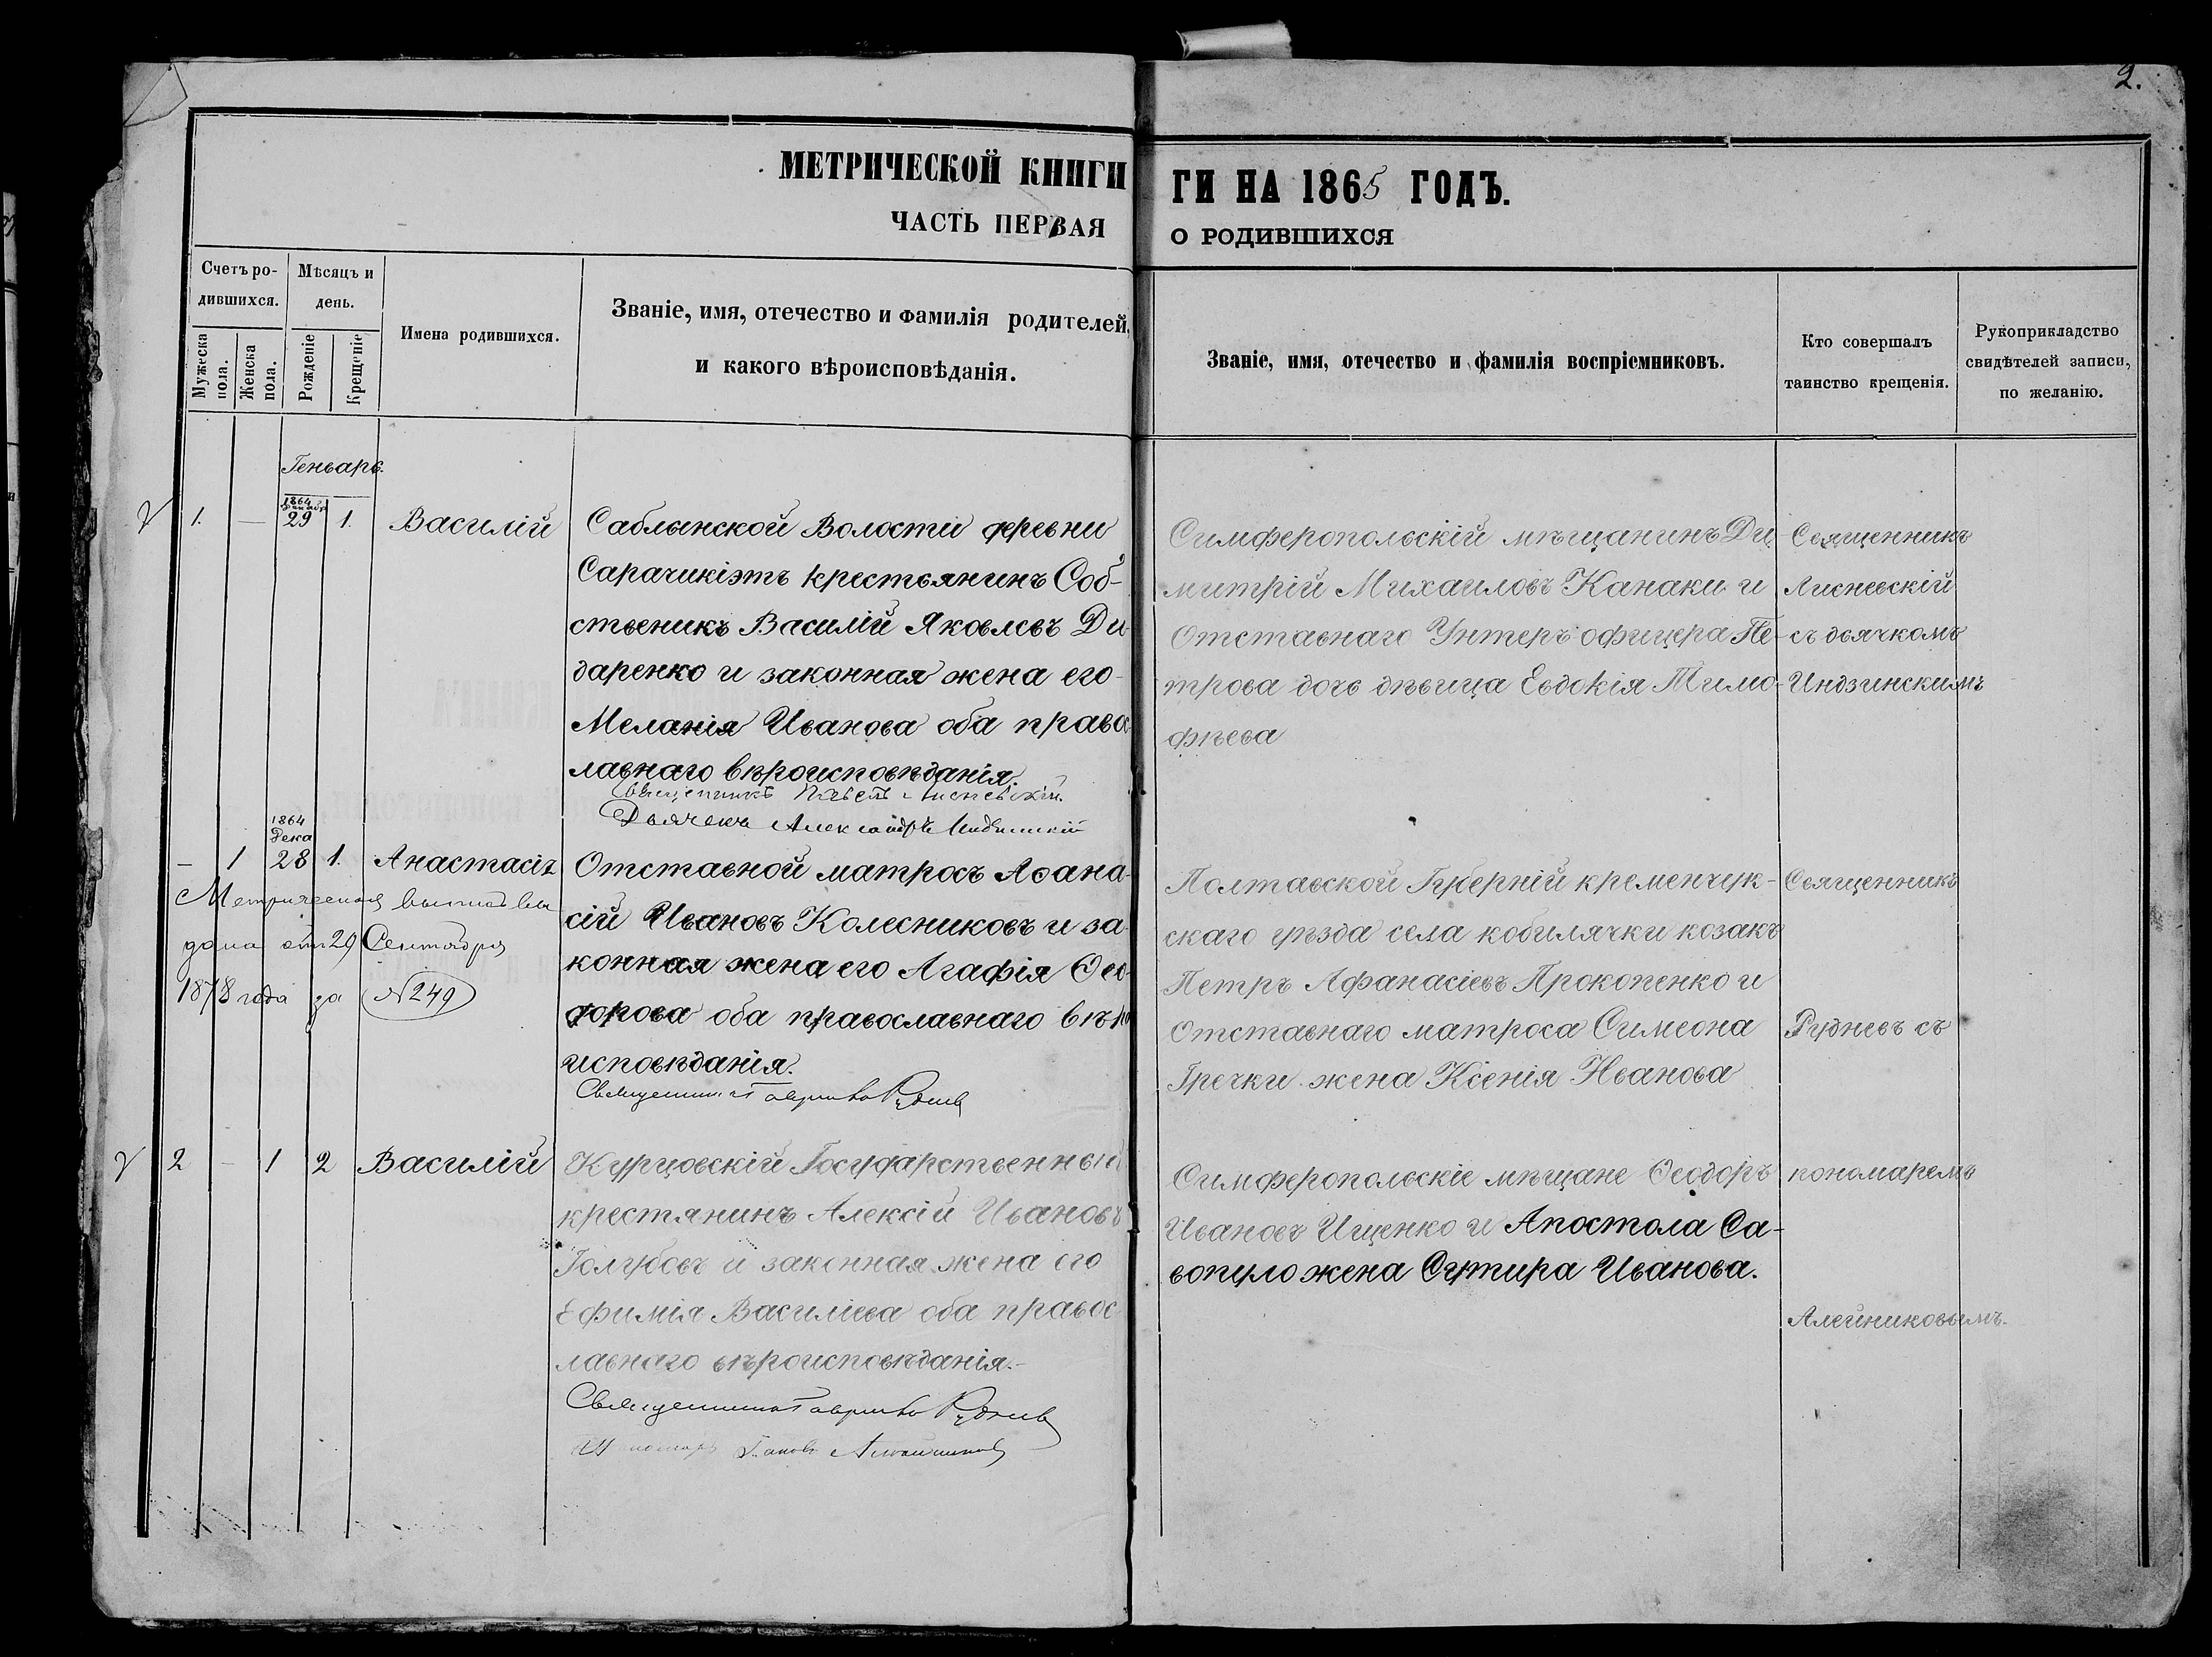 2.
МЕТРИЧЕСКОЙ КНИГИ
ЧАСТЬ ПЕРВАЯ
ГИ НА 1865 ГОДЪ.
О РОДИВШИХСЯ
Счетъ ро-
дившихся.
Мѣсяцъ и
день.
Мужеска
пола.
Женска
пола.
Рожденіе
Крещеніе
Имена родившихся.
Званіе, имя, отечество и фамилія родителей,
и какого вѣроисповѣданія.
Званіе, имя, отечество и фамилія воспріемниковъ.
Кто совершалъ
таинство крещенія.
Рукоприкладство
свидѣтелей записи,
по желанію.
Геньарь.
1. — 1864 29 1. Василій
Саблынской Волости деревни
Сарачикіэтъ крестьянинъ Соб-
ственикъ Василій Яковлевъ Ди
даренко и законная жена его
Меланія Иванова оба правос
лавнаго вѣроисповѣданія.
Священникъ Павелъ Лисневскій
Дьячекъ Александръ
Симферопольскій мѣщанинъ Ди
митрій Михаиловъ Канаки и
Отставнаго Унтеръ офицера Пе-
трова дочь дѣвица Евдокія Тимо-
фѣева
Священникъ
Лисневскій
съ дьячкомъ
Индзинскимъ
1864
Дека
— 1 28 1. Анастасія
Метрическая выпись вы
дана отъ 29 Сентября
1878 года за №249
Отставной матросъ Аѳана-
сій Ивановъ Колесниковъ и за
конная жена его Агафія Ѳео-
дорова оба православнаго вѣро
исповѣданія.
Священникъ Гавриилъ Рудневъ
Полтавской Губерній кременчук-
скаго уѣзда села кобилячки козакъ
Петръ Афанасіевъ Прокопенко и
Отставнаго матроса Симеона
Гречки жена Ксенія Иванова
Священникъ
Рудневъ съ
2 — 1 2 Василій
Курцовскій Государственный
крестянинъ Алексій Ивановъ
Голубовъ и законная жена его
Ефимія Василіева оба правос
лавнаго вѣроисповѣданія.-
Священникъ Гавриилъ Рудневъ
Пономарь Алейниковъ
Симферопольскіе мѣщане Ѳеодоръ
Ивановъ Ищенко и Апостола Са-
вопуло жена Сутира Иванова.
пономаремъ
Алейниковымъ.